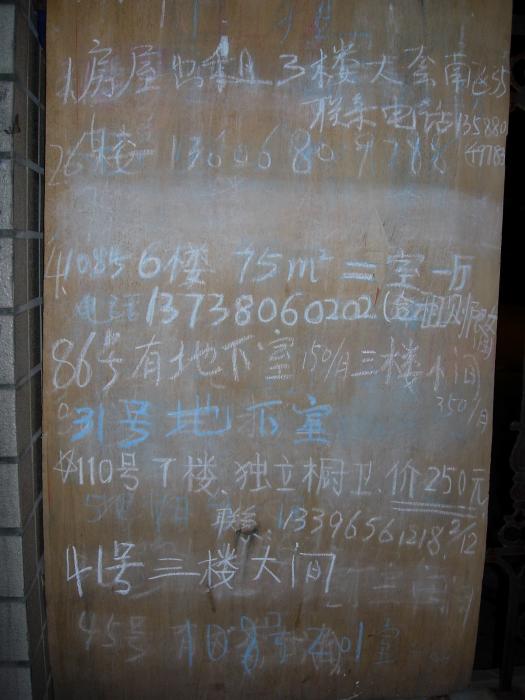 房屋出租 3楼大套南
联系电话 135880
26楼 13606809788 49783
6楼 75m² 二室一厅
电话 13738060202
86号有地下室 150/月 三楼小间
350/月
31号地下室
110号丁楼、独立橱卫、价250元
联系: 13396561218 2/12
41号三楼大间
45号